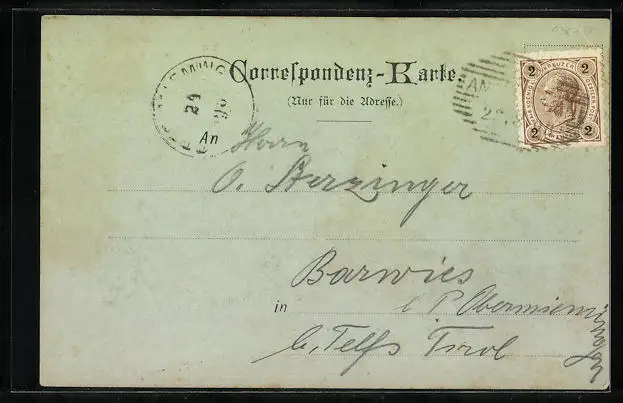 Correspondenz-Karte.
(Nur für die Adresse.)
2 KREUZER 2
2 2
24
An Herrn
O. Sterzinger
Barwies
in b/P Obermiemingen
b. Telfs Tirol